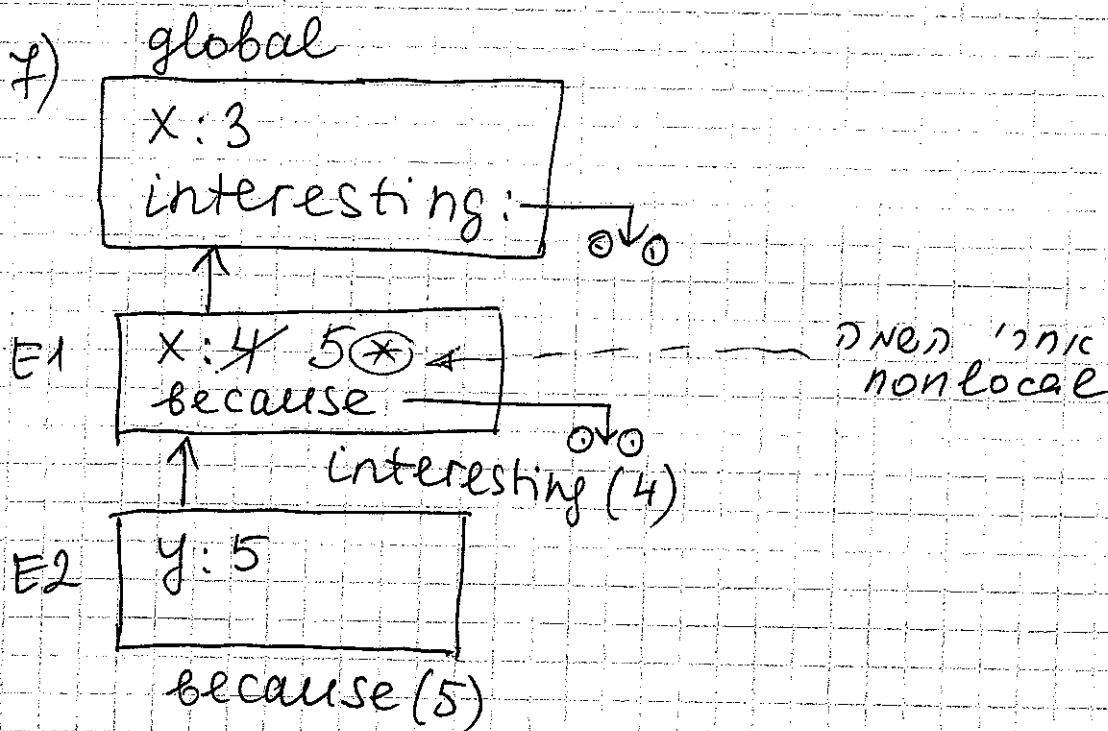 7)
global
x:3
interesting:
E1
x:4 5*
because
אחרי השמה
nonlocal
interesting(4)
E2
y:5
because(5)